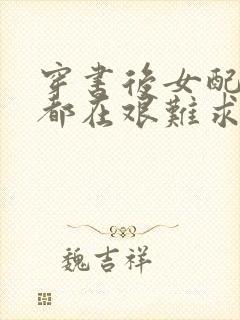 穿書後女配
都在艱難求
魏吉祥